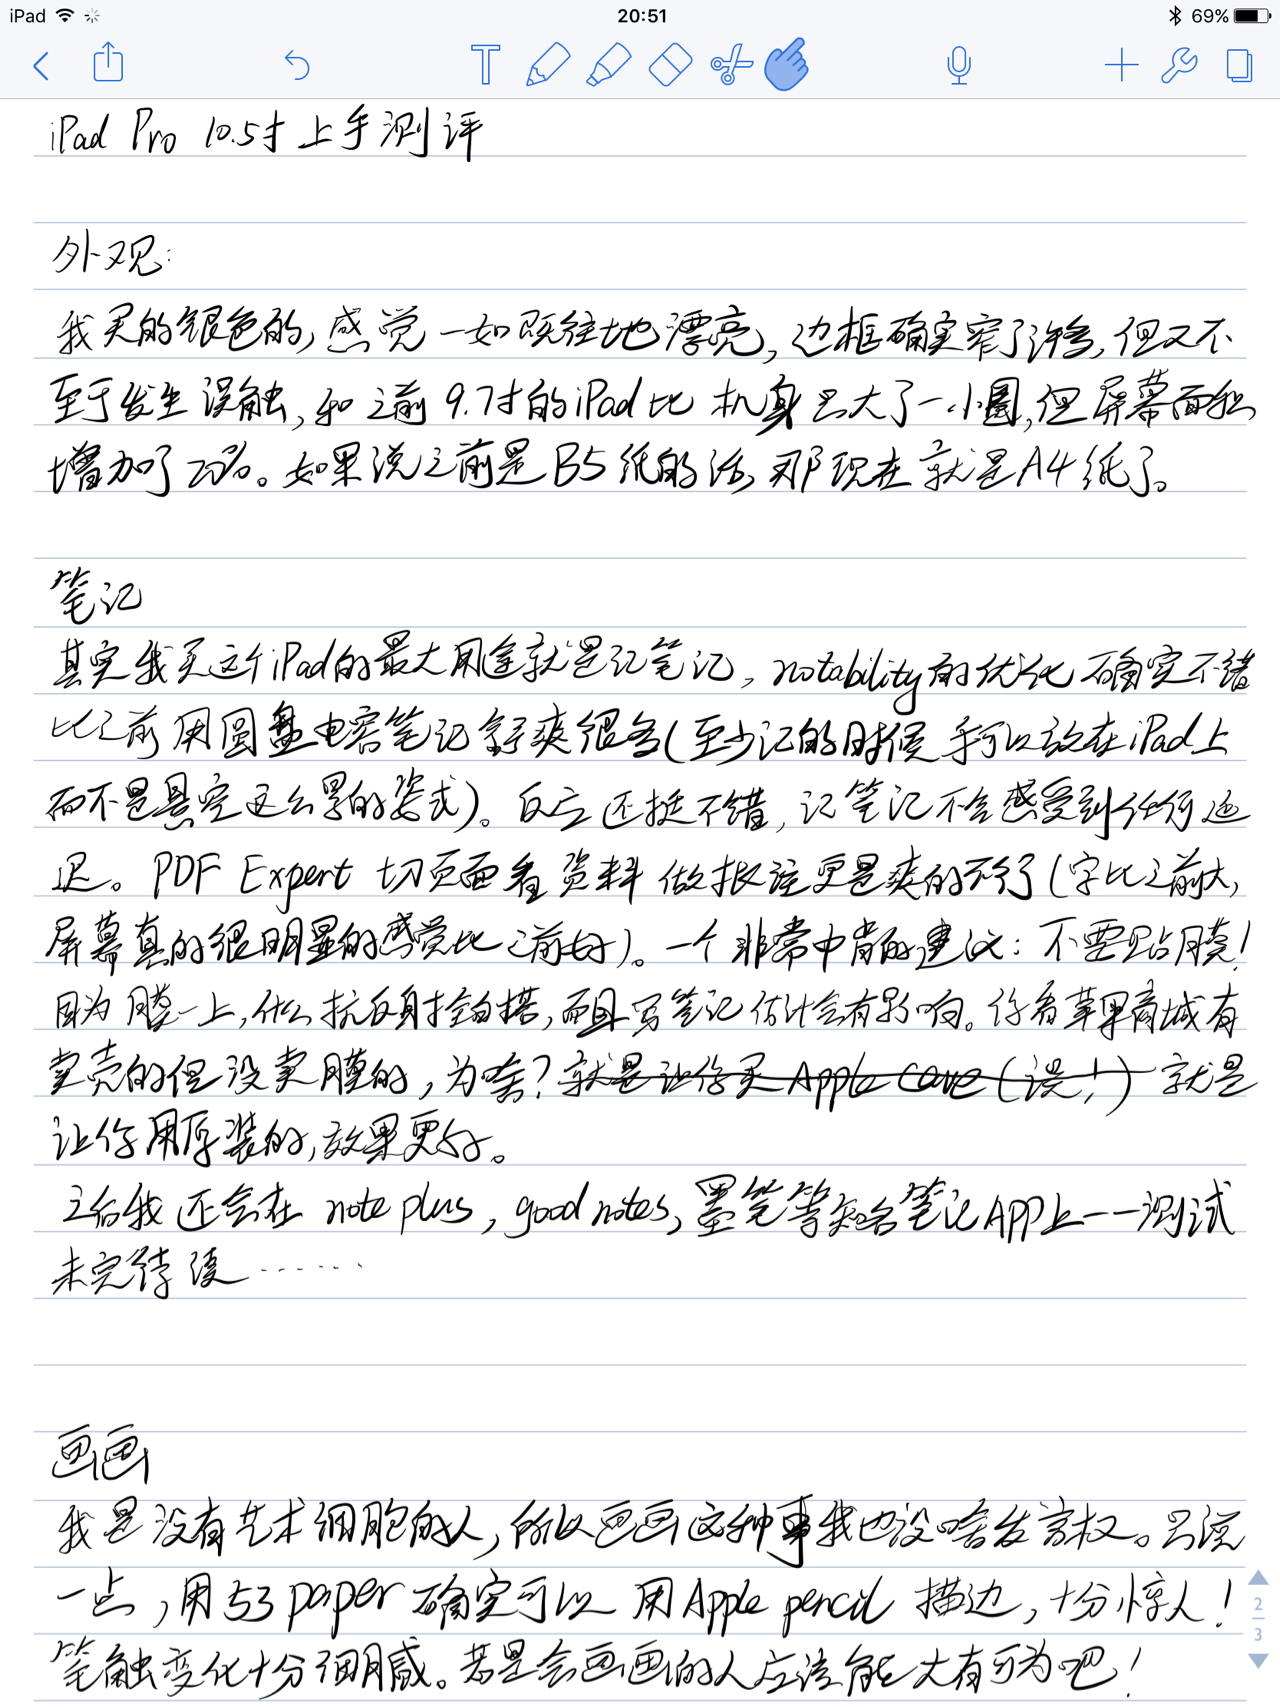 iPad 20:51 69%
iPad Pro 10.5寸上手测评
外观:
我买的银色的,感觉一如既往地漂亮,边框确实窄了许多,但又不
至于发生误触,和之前9.7寸的iPad比 机身只大了一小圈,但屏幕面积
增加了20%。如果说之前是B5纸的话,那现在就是A4纸了。
笔记
其实我买这个iPad的最大用途就是记笔记,notability的优化确实不错
比之前用圆盘电容笔记舒爽很多(至少记的时候手可以放在iPad上
而不是悬空这么累的姿式)。反应还挺不错,记笔记不会感受到任何延
迟。PDF Expert 切页面看资料做批注更是爽的不行(字比之前大,
屏幕真的很明显的感觉比之前好)。一个非常中肯的建议:不要贴膜!
因为膜一上,什么抗反射全白搭,而且写笔记估计会有影响。你看苹果商城有
卖壳的但没卖膜的,为啥?就是让你买Apple care(误!)就是
让你用原装的,效果更好。
之后我还会在 note plus, good notes,墨笔等知名笔记APP上一一测试
未完待续······
画画
我是没有艺术细胞的人,所以画画这种事我也没啥发言权。只说
一点,用53 paper确实可以用Apple pencil 描边,十分惊人!
笔触变化十分细腻。若是会画画的人应该能大有可为吧!
2
3